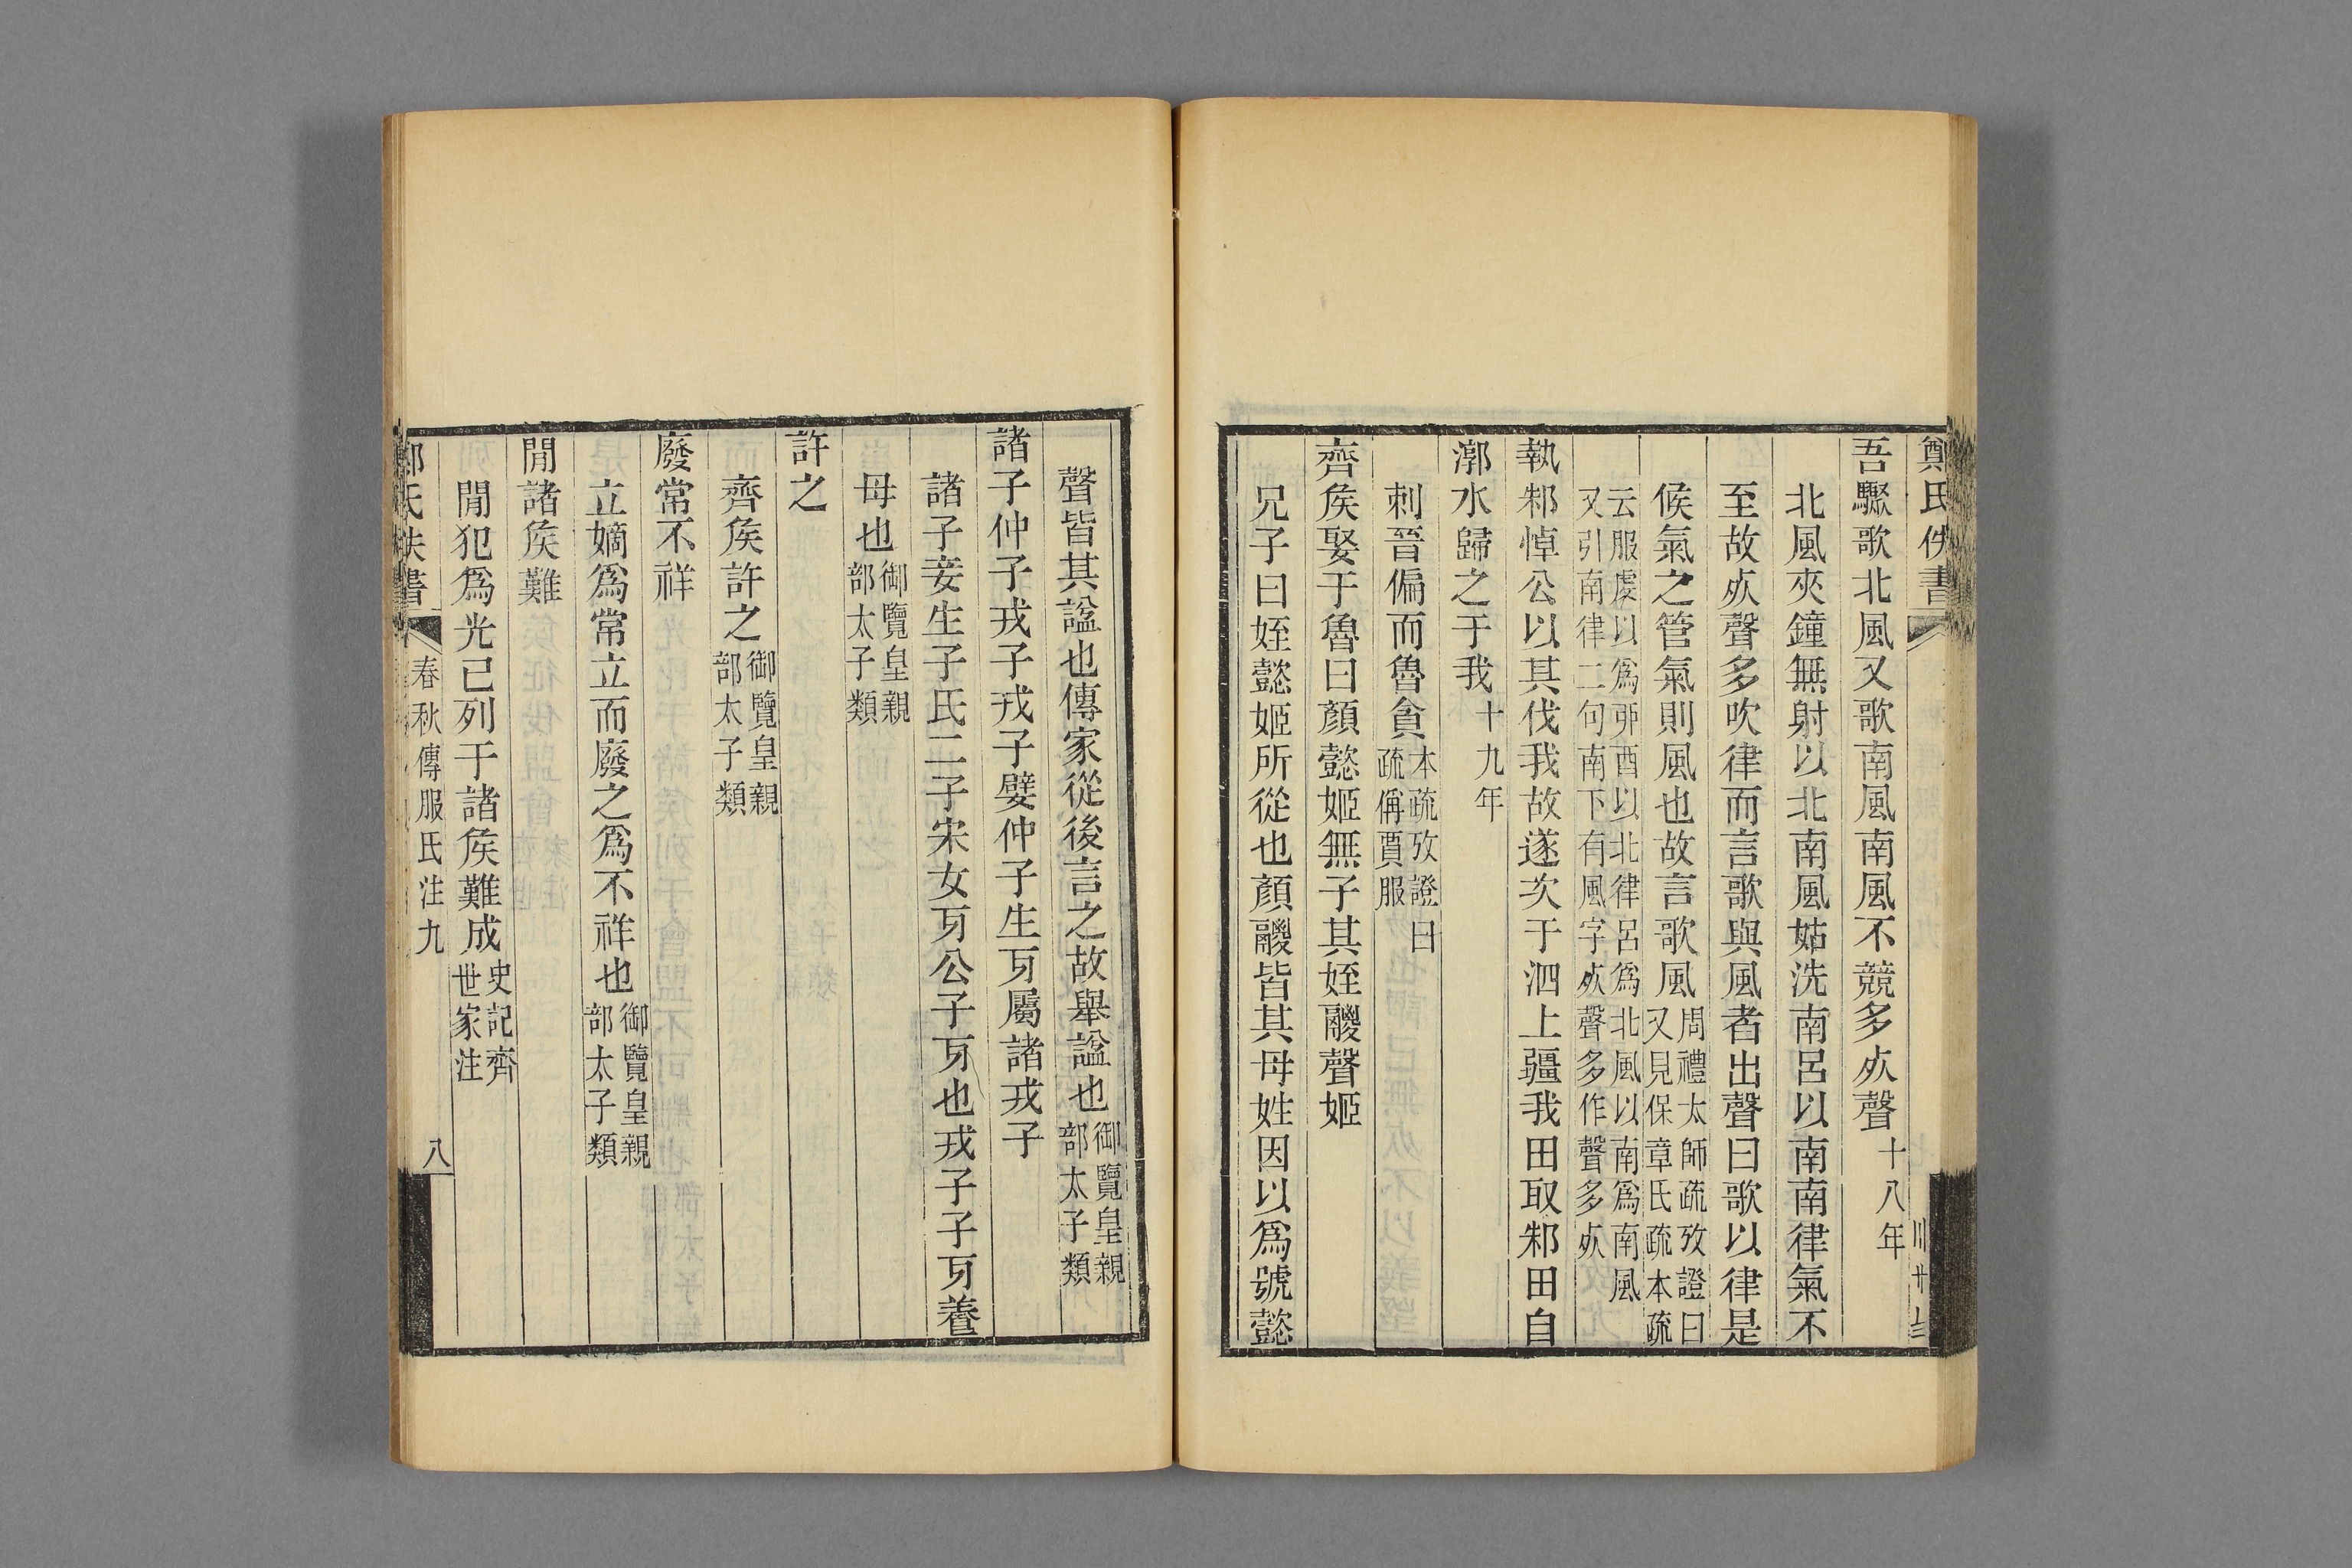 鄭氏佚書
吾驟歌北風又歌南風南風不競多𣦸聲十八年
北風夾鐘無射以北南風姑洗南呂以南南律氣不
至故𣦸聲多吹律而言歌與風者出聲曰歌以律是
候氣之管氣則風也故言歌風周禮太師疏攷證曰
又見保章氏疏本疏
云服虔以爲丣酉以北律呂爲北風以南爲南風
又引南律二句南下有風字𣦸聲多作聲多𣦸
執邾悼公以其伐我故遂次于泗上疆我田取邾田自
漷水歸之于我十九年
刺晉偏而魯貪本疏攷證曰
疏偁賈服
齊矦娶于魯曰顏懿姬無子其姪鬷聲姬
兄子曰姪懿姬所從也顏鬷皆其母姓因以爲號懿
聲皆其謚也傳家從後言之故舉謚也御覽皇親
部太子類
諸子仲子戎子戎子嬖仲子生㸦屬諸戎子
諸子妾生子氏二子宋女㸦公子㸦也戎子子㸦養
母也御覽皇親
部太子類
許之
齊矦許之御覽皇親
部太子類
廢常不祥
立嫡爲常立而廢之爲不祥也御覽皇親
部太子類
閒諸矦難
閒犯爲光已列于諸矦難成史記齊
世家注
鄭氏佚書
春秋傳服氏注九
八